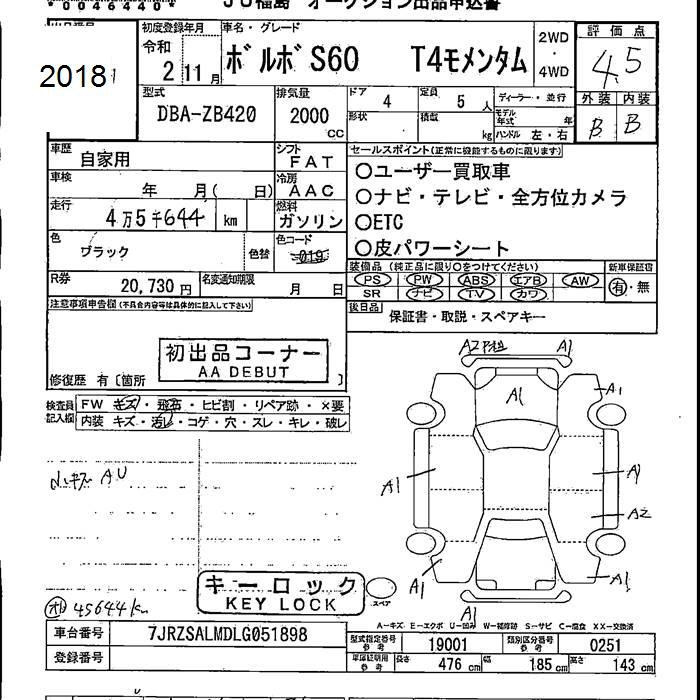 *0046440* JU福島 オークション出品申込書
2018
初度登録年月 令和 2 11月
車名・グレード ボルボ S60 T4モメンタム
2WD・4WD
評価点 4.5
型式 DBA-ZB420
排気量 2000 CC
ドア 4
定員 5 人
ディーラー・並行
形状
積載 kg
モデル年式 年
ハンドル 左・右
外装 内装
B B
車歴 自家用
シフト FAT
車検 年 月( 日)
冷房 AAC
走行 4万5千644 km
燃料 ガソリン
色 ブラック
色替
色コード 019
R券 20,730円
名変通知期限 月 日
セールスポイント(正常に機能するものに限ります)
〇ユーザー買取車
〇ナビ・テレビ・全方位カメラ
〇ETC
〇皮パワーシート
装備品 (純正品に限り〇をつけてください)
新車保証書
PS PW ABS エアB AW
有・無
SR ナビ TV カワ
後日品 保証書・取説・スペアキー
注意事項申告欄 (不具合内容等は具体的に記入して下さい)
初出品コーナー
AA DEBUT
修復歴 有 [箇所 ]
検査員記入欄
FW キズ・飛石・ヒビ割・リペア跡・×要
内装 キズ・汚レ・コゲ・穴・スレ・キレ・破レ
A1
A1
A1
A1
A1
A1
A2
A1
A1
A1
小キズ AU
キーロック
KEY LOCK
スペア
45644km
A−キズ E−エクボ U−凹み W−補修跡 S−サビ C−腐食 XX−交換済
車台番号 7JRZSALMDLG051898
登録番号
型式指定番号 参考 19001
類別区分番号 参考 0251
車庫証明用 参考 長さ 476 cm 幅 185 cm 高さ 143 cm